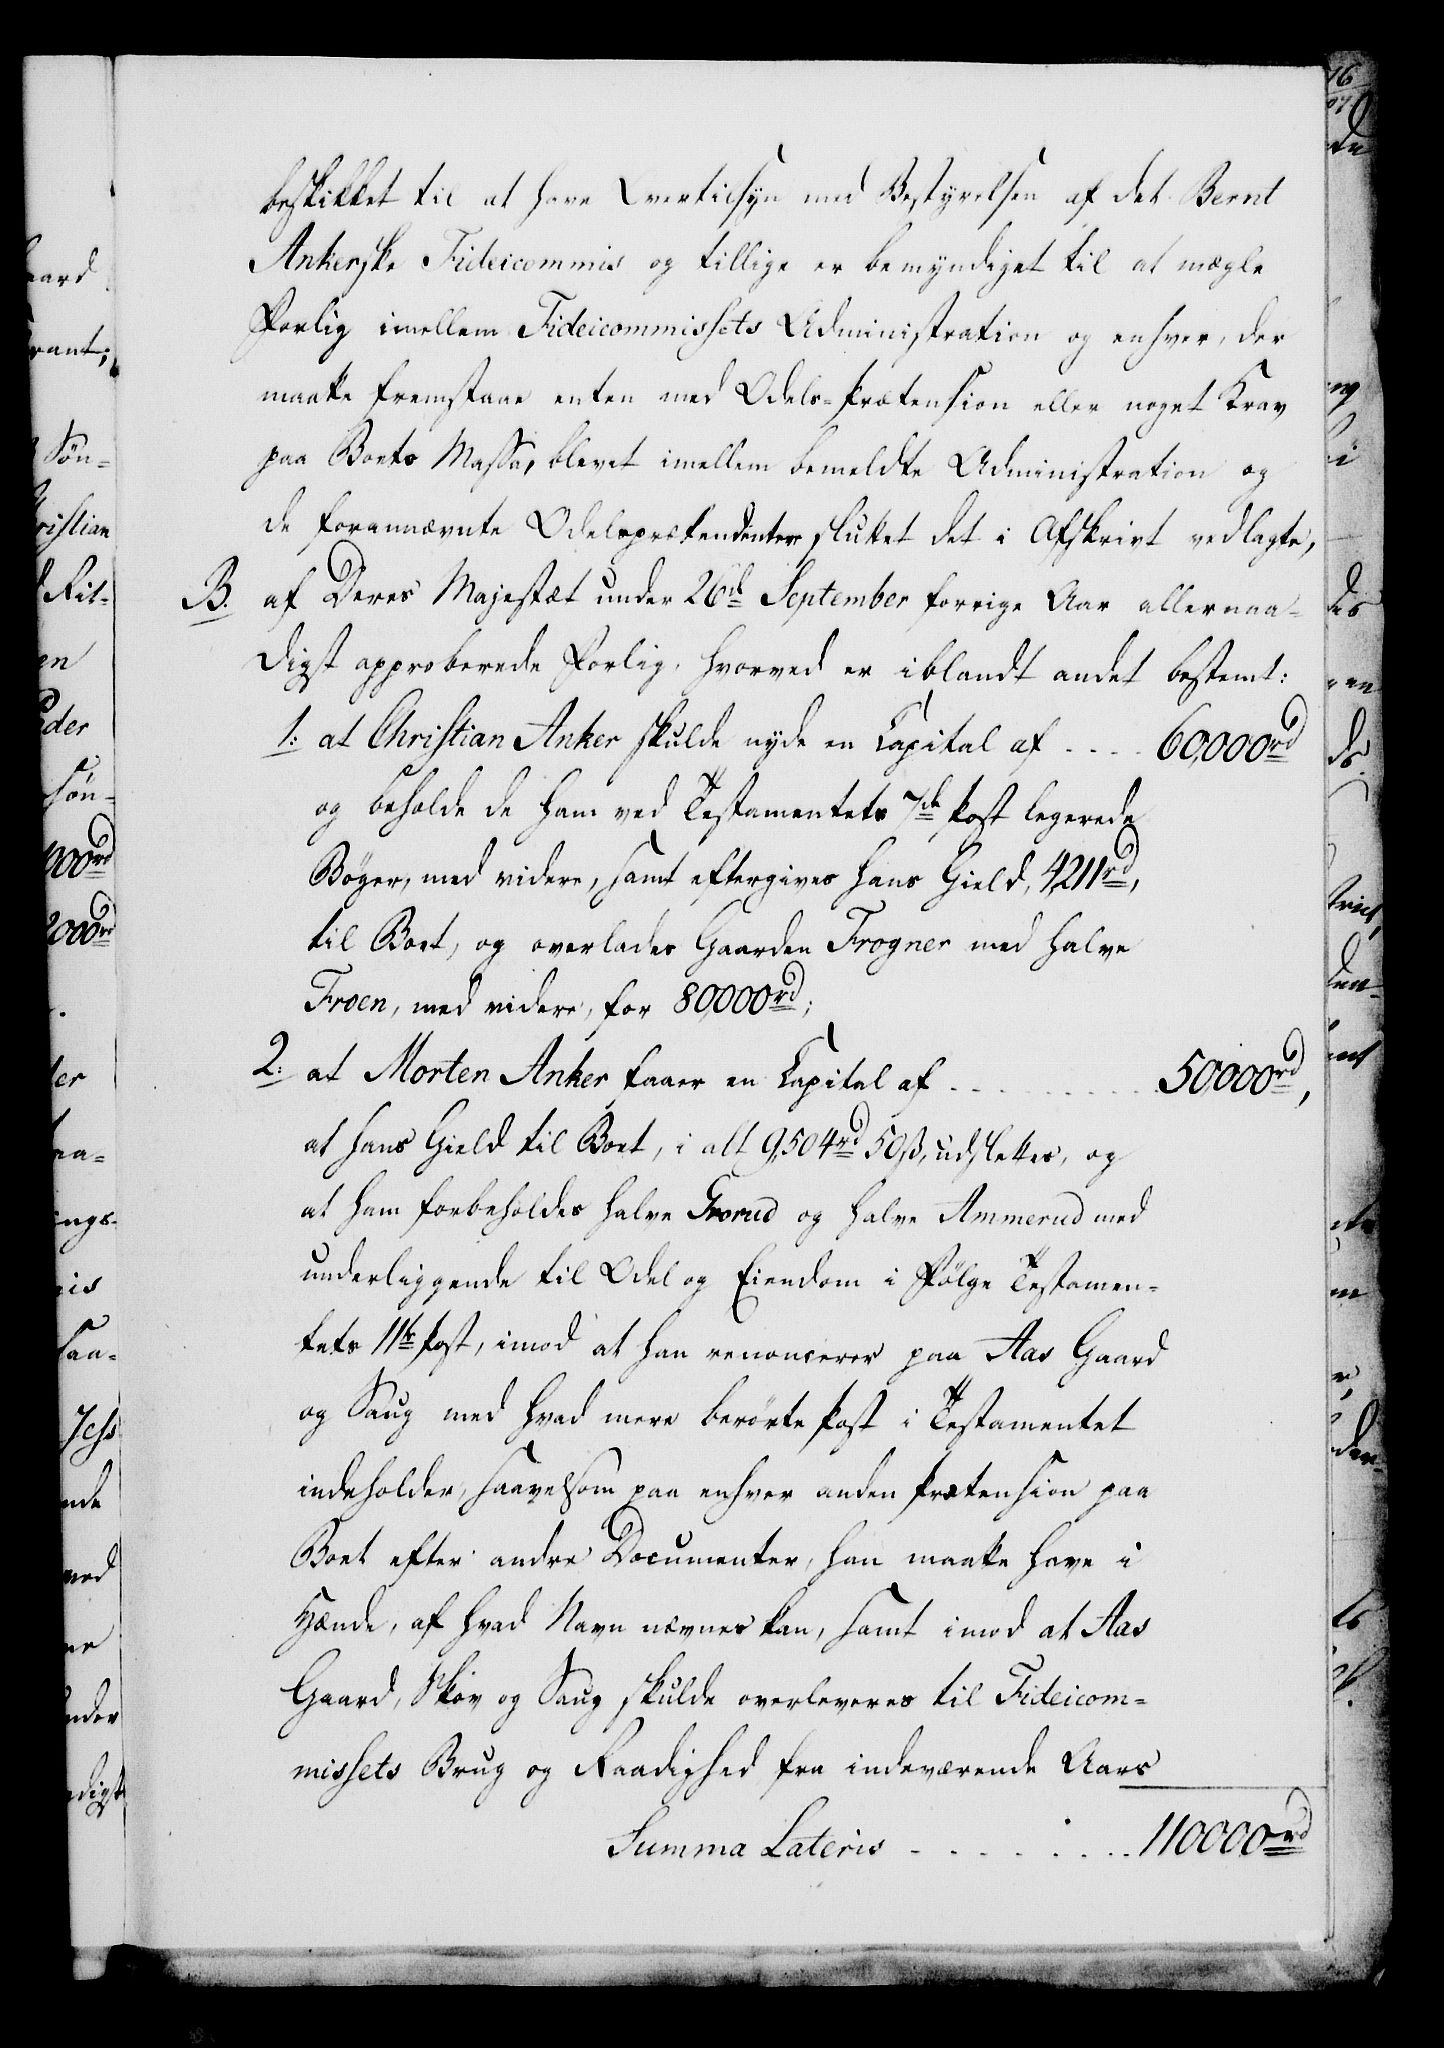 beskikket til at have Overtilsyn med Bestyrelsen af det Bernt
Ankerske Fideicommis og tillige er bemyndiget til at mægle
Forlig imellem Fideicommissets Administration og enhver, der
maatte fremstaae enten med Odels-Prætension eller noget Krav
paa Boets Massa, blevet imellem bemeldte Administration og
de forannævnte Odelsprætendenter sluttet det i Afskrivt vedlagte,
B. af Deres Majestæt under 26d September forrige Aar allernaa-
digst approberede Forlig, hvorved er iblandt andet bestemt:
1: at Christian Anker skulde nyde en Capital af .... 60,000rd
og beholde de ham ved Testamentets 7de Post legerede
Bøger, med videre, samt eftergives hans Gield, 4211rd,
til Boet, og overlades Gaarden Frogner med halve
Froen, med videre, for 80,000rd;
2: at Morten Anker faaer en Capital af ......... 50,000rd,
at hans Gield til Boet, i alt 9,504rd 50ß, udslettes, og
at ham forbeholdes halve Grorud og halve Ammerud med
underliggende til Odel og Eiendom i Følge Testamen-
tets 11te Post, imod at han renoncerer paa Aas Gaard
og Saug med hvad mere berörte Post i Testamentet
indeholder, saavelsom paa enhver anden Prætension paa
Boet efter andre Documenter, han maatte have i
Hænde, af hvad Navn nævnes kan, samt imod at Aas
Gaard, Skov og Saug skulde overleveres til Fideicom-
missets Brug og Raadighed fra indeværende Aars
Summa Lateris ........ 110000rd